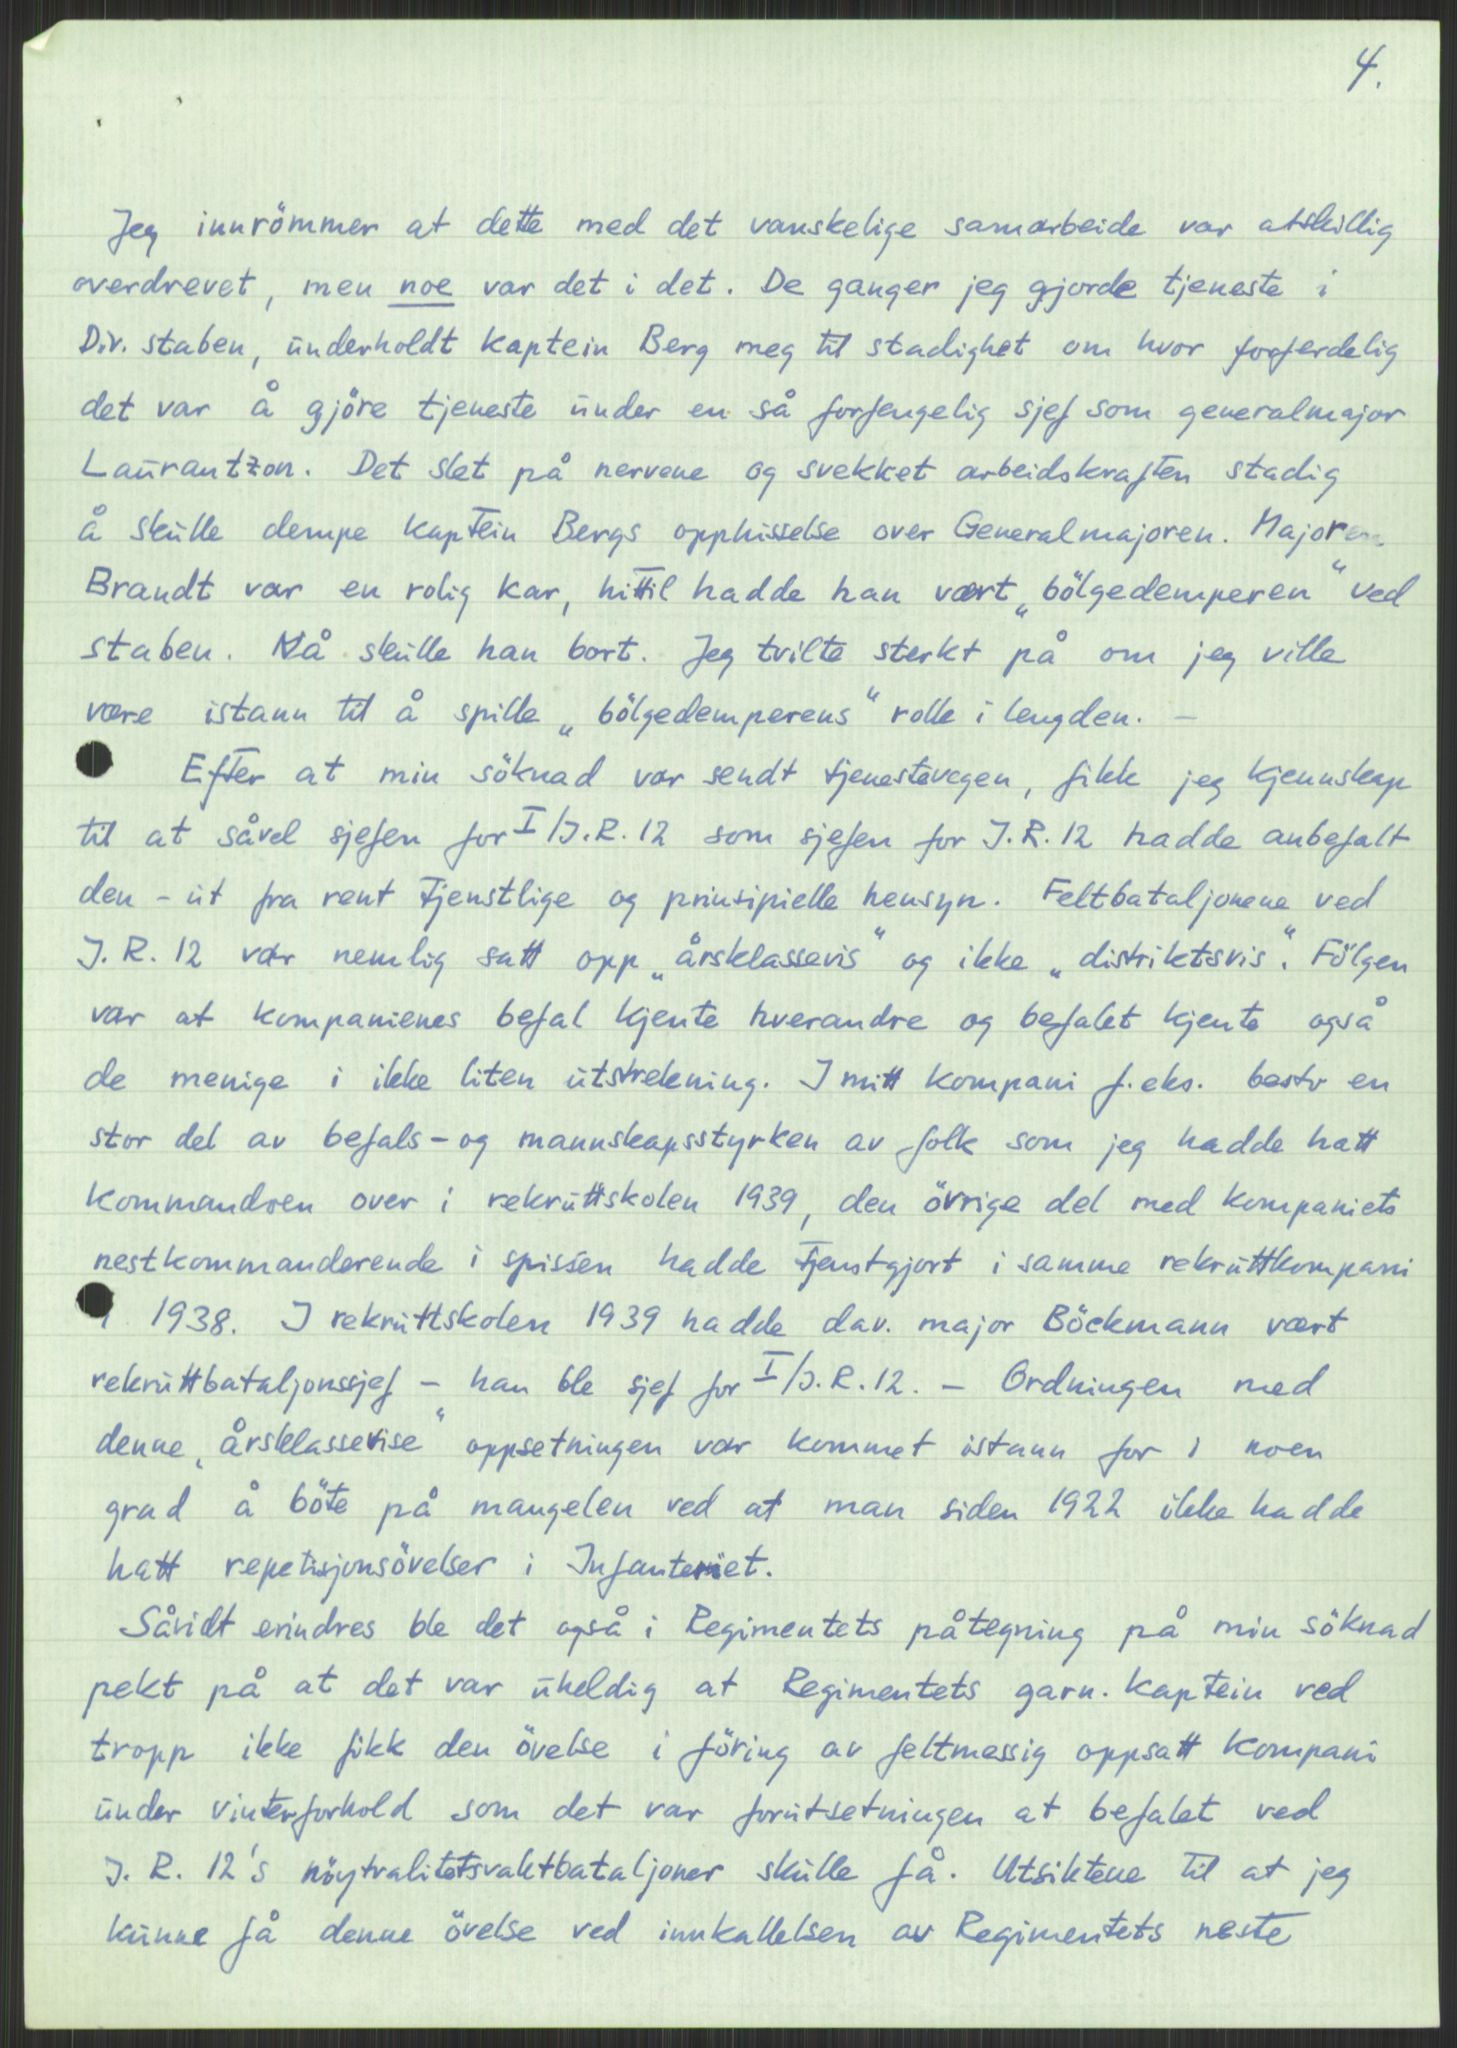 4.
Jeg innrömmer at dette med det vanskelige samarbeide var atskillig
overdrevet, men noe var det i det. De ganger jeg gjorde tjeneste i
Div. staben, underholdt kaptein Berg meg til stadighet om hvor forferdelig
det var å gjöre tjeneste under en så forfengelig sjef som generalmajor
Laurantzon. Det slet på nervene og svekket arbeidskraften stadig
å skulle dempe kaptein Bergs opphisselse over Generalmajoren. Majoren
Brandt var en rolig kar, hittil hadde han vært „bölgedemperen" ved
staben. Nå skulle han bort. Jeg tvilte sterkt på om jeg ville
være istann til å spille „bölgedemperens" rolle i lengden. –
Efter at min söknad var sendt tjenestevegen, fikk jeg kjennskap
til at såvel sjefen for I/J.R. 12 som sjefen for J.R. 12 hadde anbefalt
den – ut fra rent tjenstlige og prinsipielle hensyn. Feltbataljonene ved
J.R. 12 var nemlig satt opp „årsklassevis" og ikke „distriktsvis". Fölgen
var at kompanienes befal kjente hverandre og befalet kjente også
de menige i ikke liten utstrekning. I mitt kompani f.eks. besto en
stor del av befals- og mannskapsstyrken av folk som jeg hadde hatt
kommandoen over i rekruttskolen 1939, den övrige del med kompaniets
nestkommanderende i spissen hadde tjenstgjort i samme rekruttkompani
i 1938. I rekruttskolen 1939 hadde dav. major Böckmann vært
rekruttbataljonssjef – han ble sjef for I/J.R. 12. – Ordningen med
denne „årsklassevise" oppsetningen var kommet istann for i noen
grad å böte på mangelen ved at man siden 1922 ikke hadde
hatt repetisjonsövelser i Infanteriet.
Såvidt erindres ble det også i Regimentets påtegning på min söknad
pekt på at det var uheldig at Regimentets garn. kaptein ved
tropp ikke fikk den övelse i föring av feltmessig oppsatt kompani
under vinterforhold som det var forutsetningen at befalet ved
J.R. 12's nöytralitetsvaktbataljoner skulle få. Utsiktene til at jeg
kunne få denne övelse ved innkallelsen av Regimentets neste